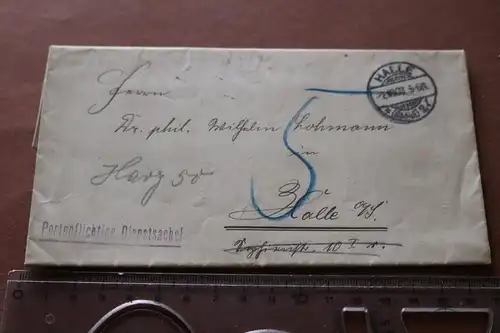 HALLE
Herrn
Dr. phil. Wilhelm Lohmann
in
Harz 50
5
Halle a/S.
Portopflichtige Dienstsache!
10 I r.